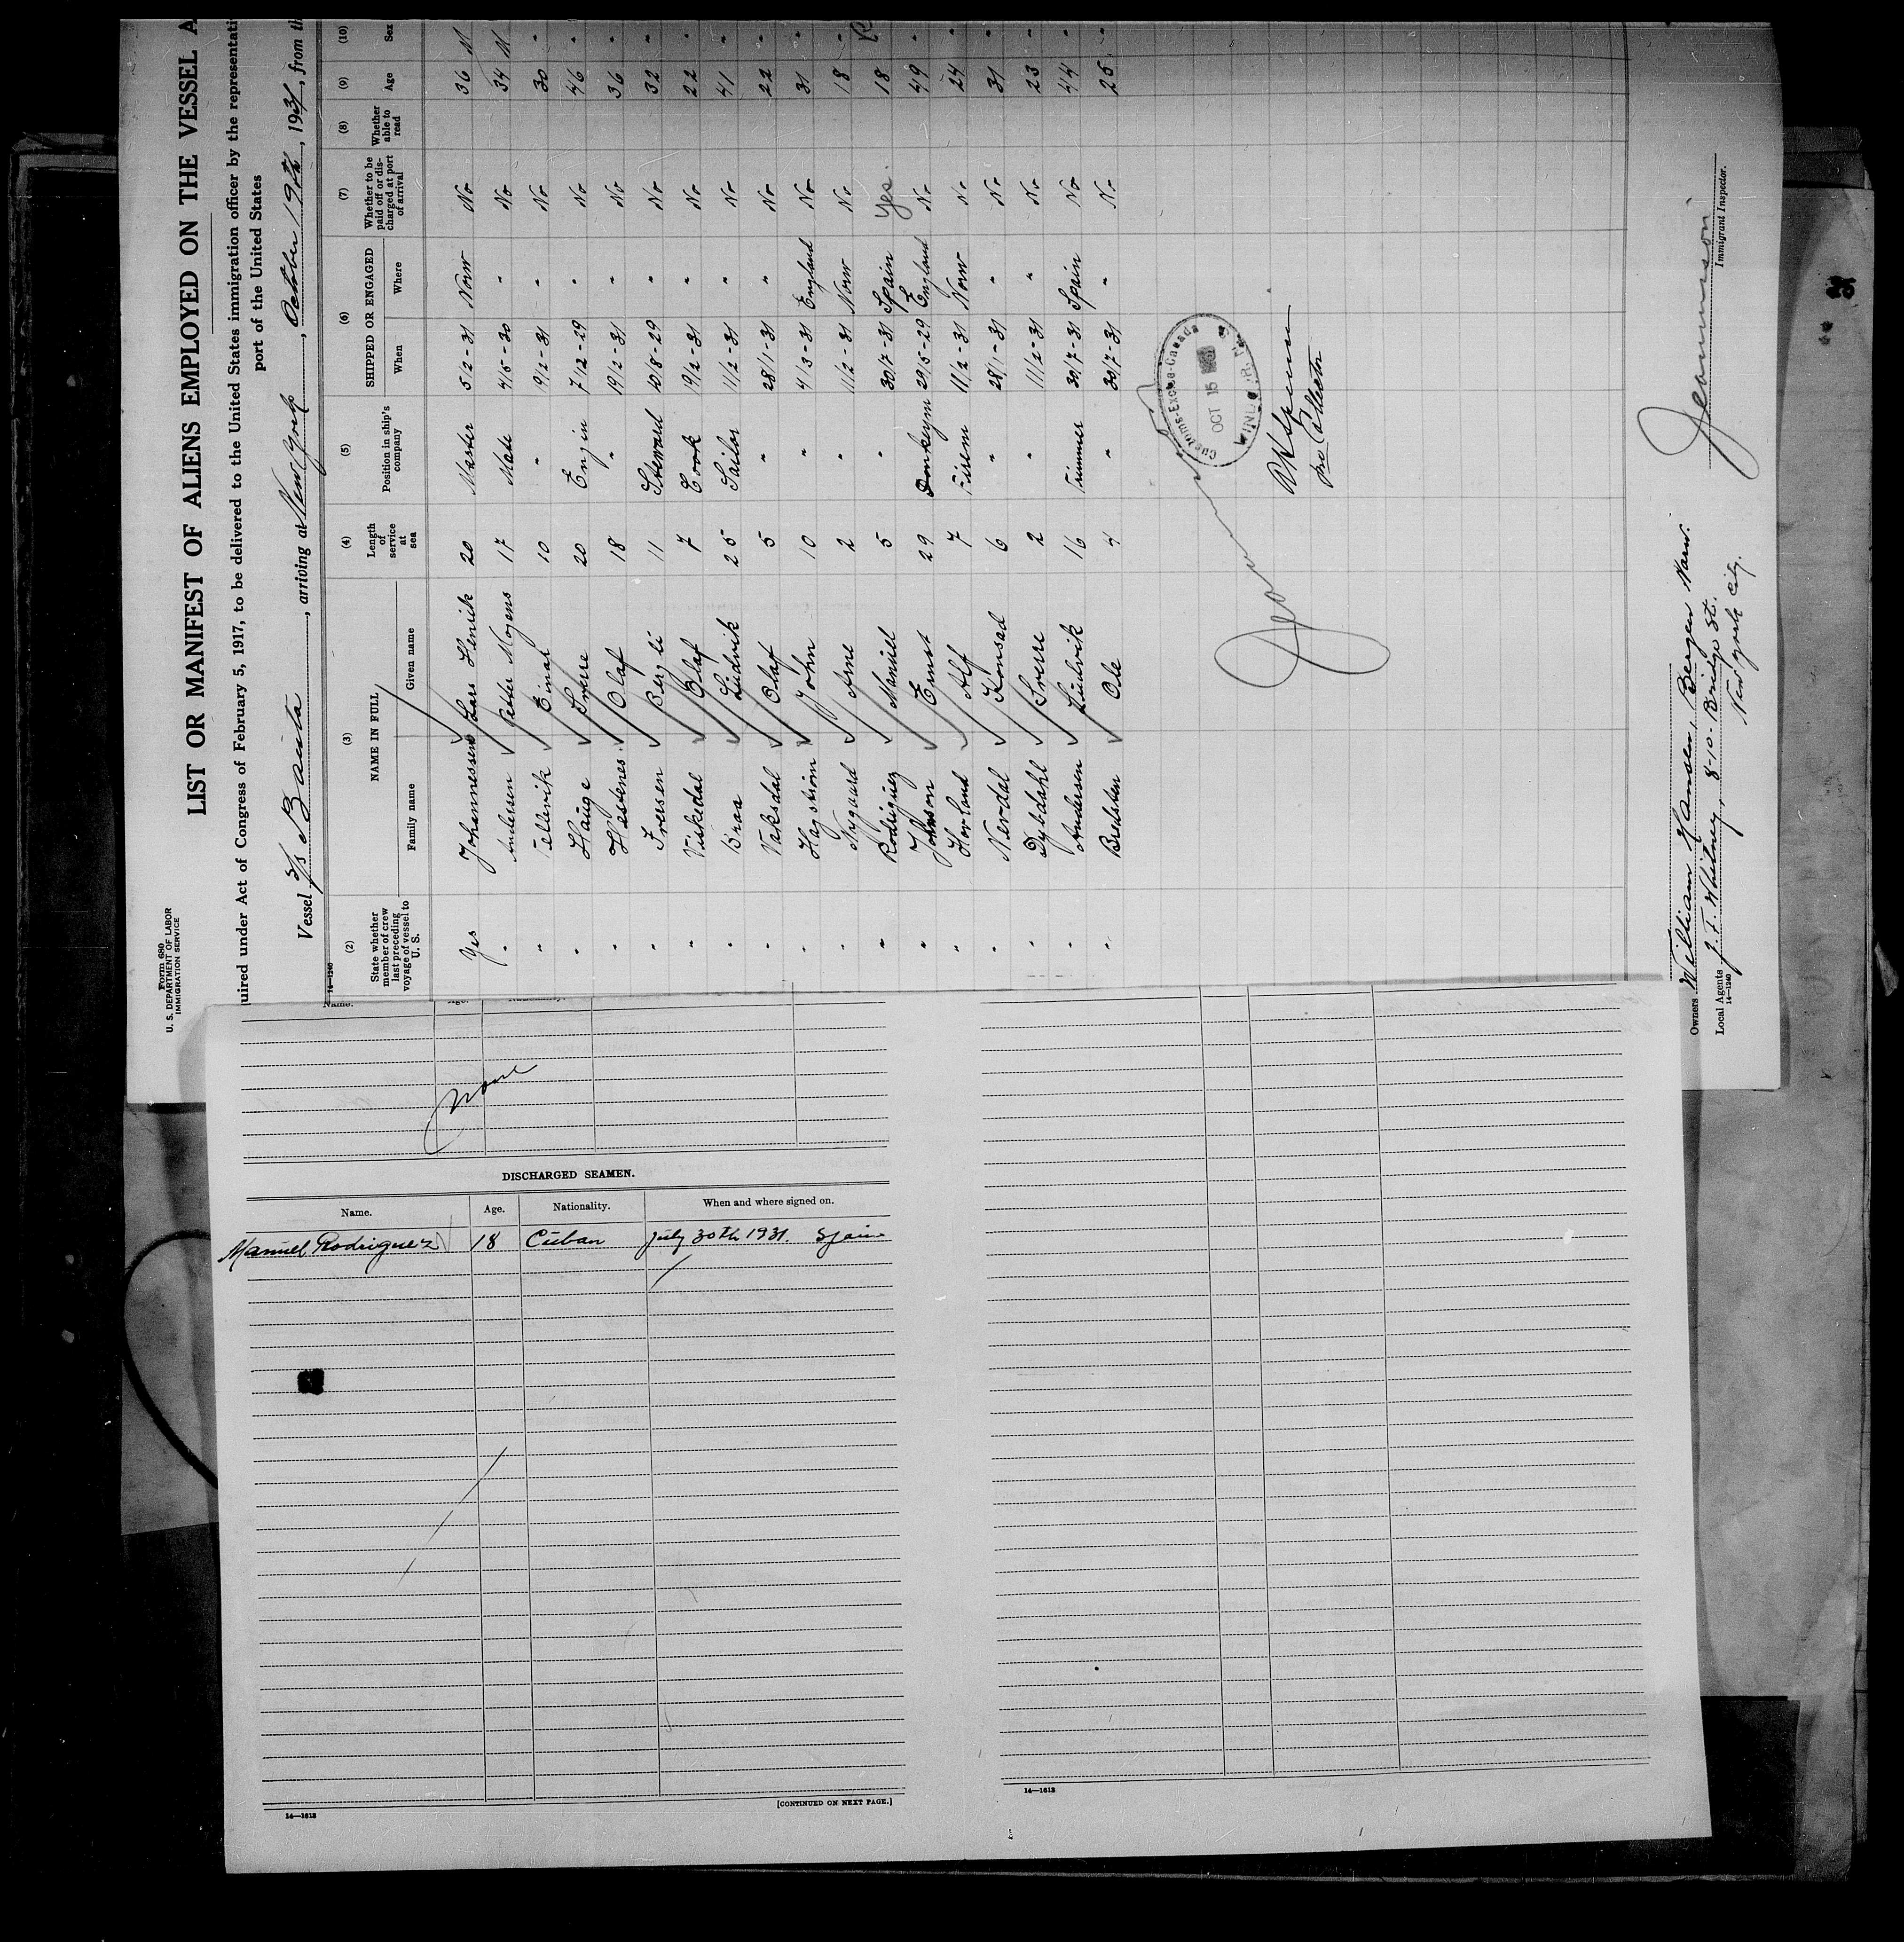 Form 680
U. S. DEPARTMENT OF LABOR
IMMIGRATION SERVICE
LIST OR MANIFEST OF ALIENS EMPLOYED ON THE VESSEL A
uired under Act of Congress of February 5, 1917, to be delivered to the United States immigration officer by the representati
port of the United States
Vessel S/S Bauta, arriving at New York, October 19th, 1931, from th
14—1240
(2) (3) (4) (5) (6) (7) (8) (9) (10)
State whether member of crew last preceding voyage of vessel to U. S. NAME IN FULL Length of service at sea Position in ship's company SHIPPED OR ENGAGED Whether to be paid off or discharged at port of arrival Whether able to read Age Sex
Family name Given name When Where
Yes Johannessen Lars Henrik 20 Master 5/2-31 Norw No 36 M
" Andersen Petter Mogens 17 Mate 4/5-30 " No 34 M
" Tellevik Einar 10 " 9/2-31 " No 30 "
" Hauge Sverre 20 Engin 7/12-29 " No 46 "
" Hestenes Olaf 18 " 19/2-31 " No 36 "
" Iversen Bergli 11 Steward 10/8-29 " No 32 "
" Vikedal Olaf 7 Cook 9/2-31 " No 22 "
" Braa Ludvik 25 Sailor 11/2-31 " No 41 "
" Vaksdal Olaf 5 " 28/1-31 " No 22 "
" Hagstrøm John 10 " 4/3-31 England No 31 "
" Nygaard Arne 2 " 11/2-31 Norw No 18 "
" Rodriguez Manuel 5 " 30/7-31 Spain Yes. 18
" Johnson Ernst 29 Donkeym 29/5-29 England No 49 "
" Hovland Alf 7 Firem 11/2-31 Norw No 24 "
" Nerdal Konrad 6 " 28/1-31 " No 31 "
Dybdahl Sverre 2 " 11/2-31 " No 23 "
" Andersen Ludvik 16 Trimmer 30/7-31 Spain No 44 "
" Bredsten Ole 4 " 30/7-31 " No 25 "
Customs-Excise-Canada
OCT 15
Owners William Hansen, Bergen Norw.
Local Agents J. F. Whitney, 8-10-Bridge St.
New York City.
14—1240
Immigrant Inspector.
Name.
None
DISCHARGED SEAMEN.
Name. Age. Nationality. When and where signed on.
Manuel Rodriguez 18 Cuban July 30th 1931. Spain
14—1613
[CONTINUED ON NEXT PAGE.]
14—1613